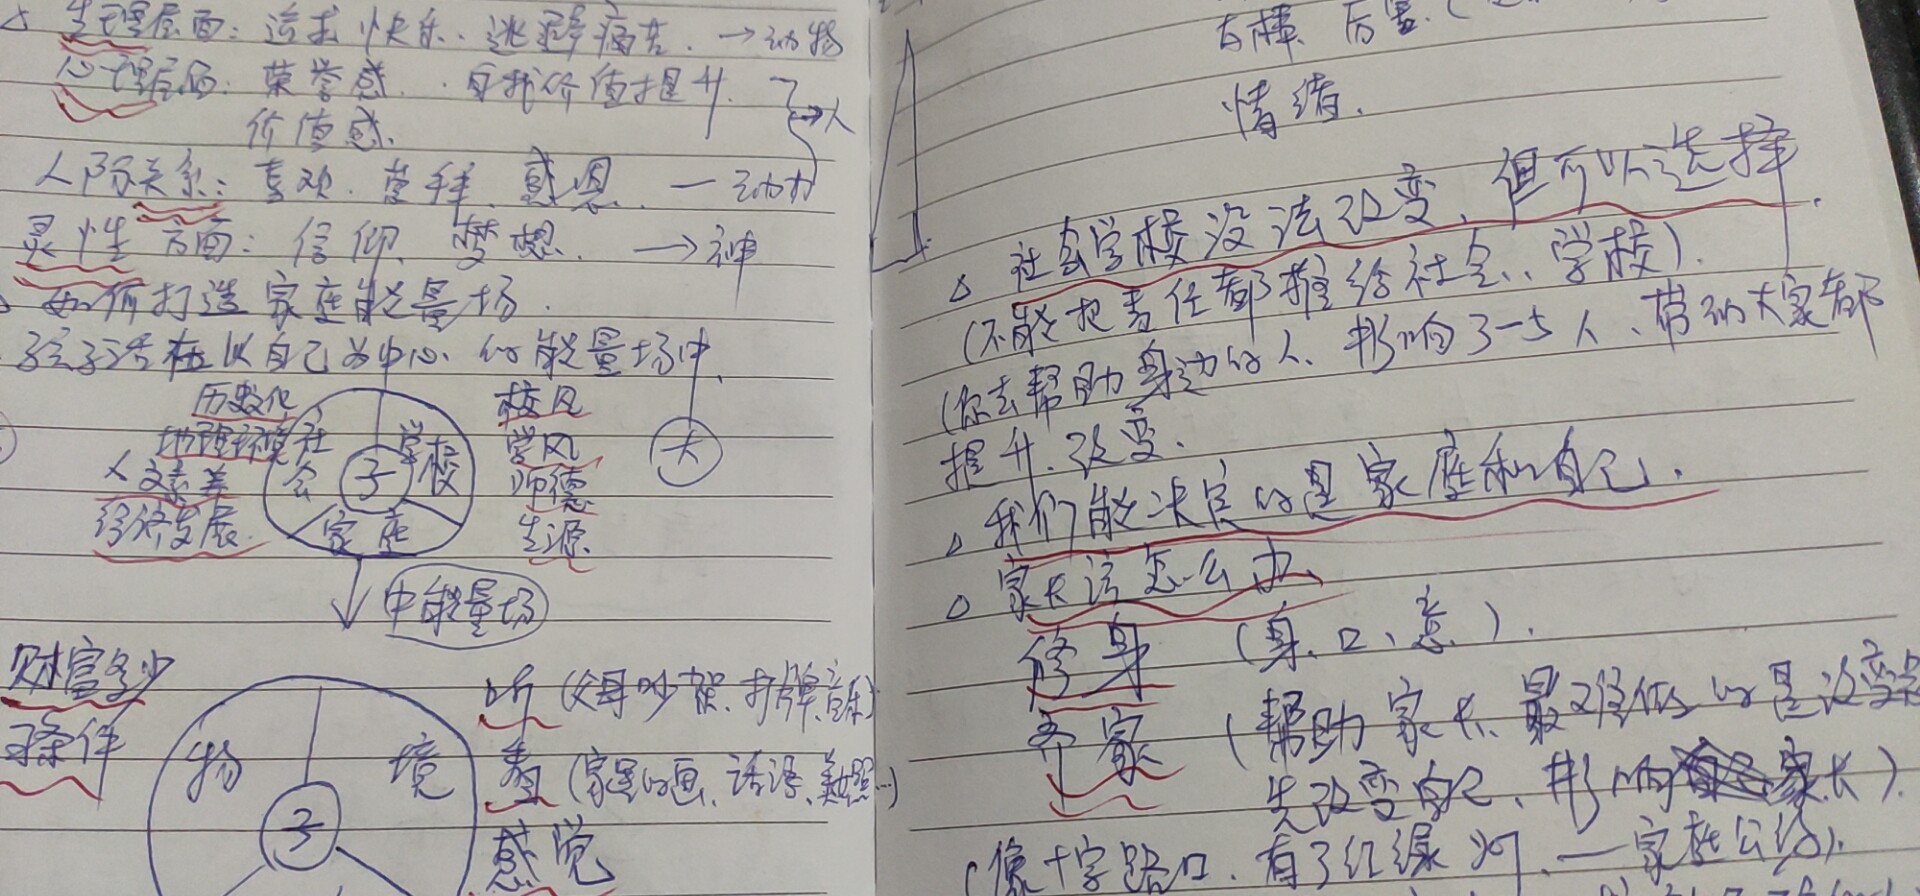 生理层面：追求快乐、逃避痛苦. →动物
心理层面：荣誉感. 自我价值提升.
价值感. →人
人际关系：喜欢. 崇拜. 感恩. — 动力
灵性方面：信仰. 梦想. →神
如何打造家庭能量场.
孩子活在以自己为中心的能量场中.
历史文化
地理环境
人文素养
经济发展.
社会
学校
子
家庭
校风
学风
师德
生源
大
中能量场
财富多少
条件
物
境
子
听 (父母吵架、打牌、音乐)
看 (家里的画、话语、
感觉
有棒、厉害. (
情绪.
△ 社会学校没法改变，但可以选择.
(不能把责任都推给社会、学校).
(你去帮助身边的人、影响3-5人、带动大家都
提升、改变.
△ 我们能决定的是家庭和自己.
△ 家长该怎么办
修身 (身、口、意).
齐家 (帮助家长、最
先改变自己、影响家长).
(像十字路口、有了红绿灯、—家庭公约).